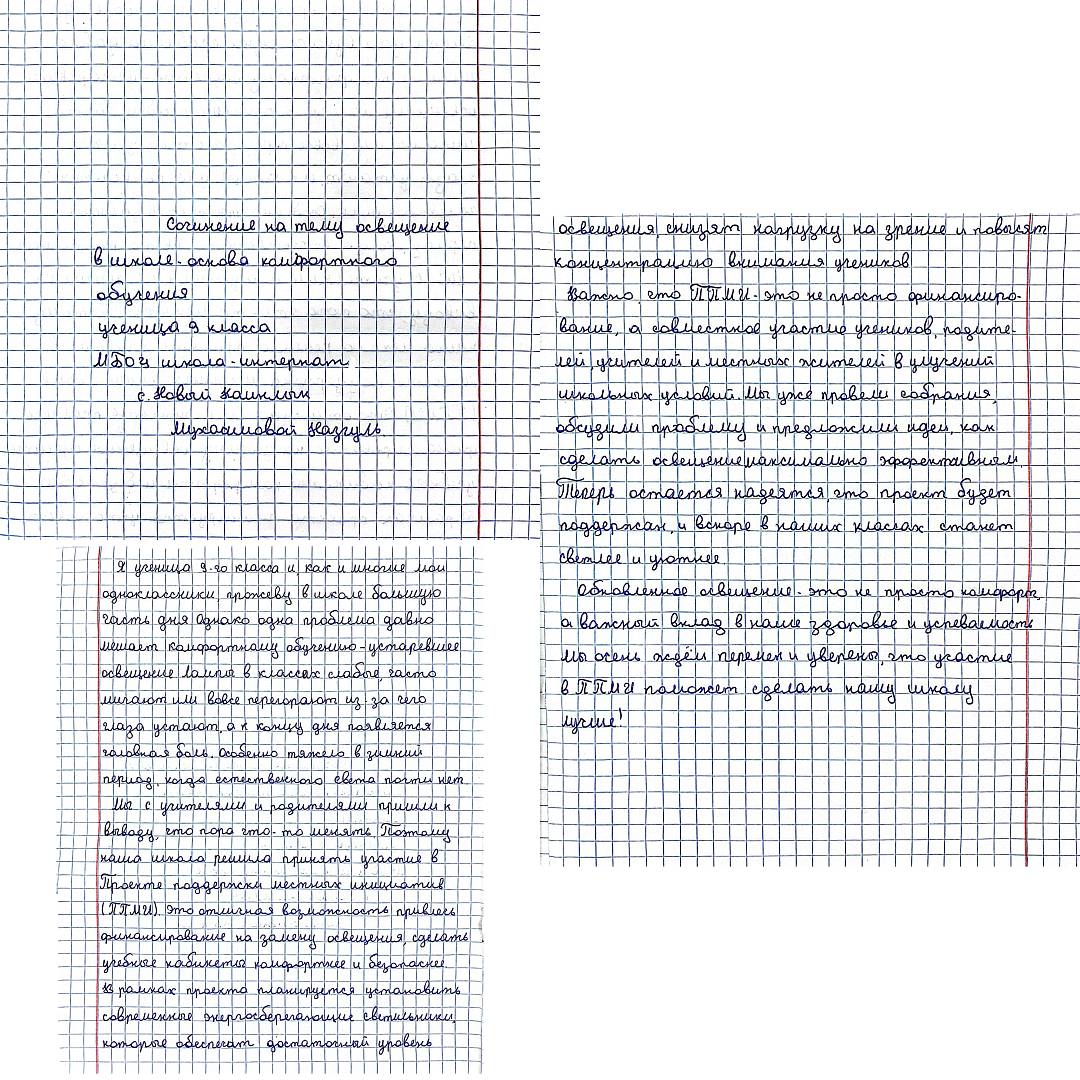 Сочинение на тему освещение
в школе - основа комфортного
обучения
ученица 9 класса
МБОУ школа-интернат
с. Новый Каинлык
Мухасимовой Назгуль.
Я ученица 9-го класса и, как и многие мои
одноклассники, провожу в школе большую
часть дня. Однако одна проблема давно
мешает комфортному обучению - устаревшее
освещение. Лампы в классах слабые, часто
мигают или вовсе перегорают из за чего
глаза устают, а к концу дня появляется
головная боль. Особенно тяжело в зимний
период, когда естественного света почти нет.
Мы с учителями и родителями пришли к
выводу, что пора что-то менять. Поэтому
наша школа решила принять участие в
Проекте поддержки местных инициатив
(ППМИ). Это отличная возможность привлечь
финансирование на замену освещения, сделать
учебные кабинеты комфортнее и безопаснее.
В рамках проекта планируется установить
современные энергосберегающие светильники,
которые обеспечат достаточный уровень
освещения, снизят нагрузку на зрение и повысят
концентрацию внимания учеников
Важно, что ППМИ - это не просто финансиро-
вание, а совместное участие учеников, родите-
лей, учителей и местных жителей в улучений
школьных условий. Мы уже провели собрания,
обсудили проблему и предложили идеи, как
сделать освещение максимально эффективным.
Теперь остается надеятся, что проект будет
поддержан, и вскоре в наших классах станет
светлее и уютнее.
Обновленное освещение - это не просто комфорт,
а важный вклад в наше здоровье и успеваемость
Мы очень ждём перемен и уверены, что участие
в ППМИ поможет сделать нашу школу
лучше!